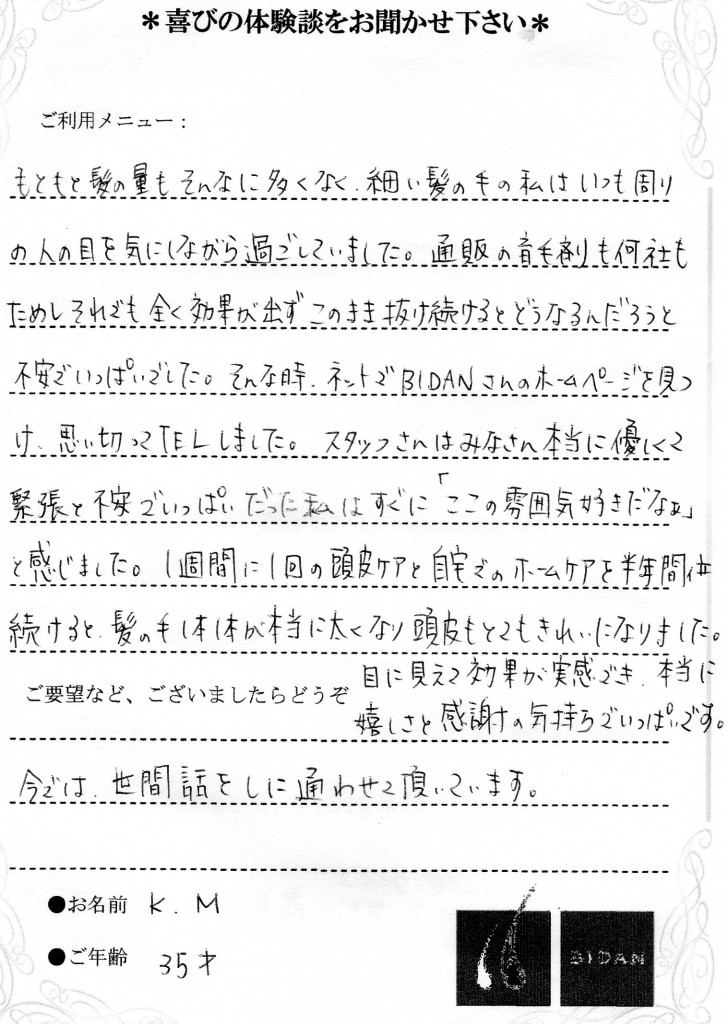 ＊喜びの体験談をお聞かせ下さい＊
ご利用メニュー：
もともと髪の量もそんなに多くなく、細い髪の毛の私はいつも周り
の人の目を気にしながら過ごしていました。通販の育毛剤も何社も
ためしそれでも全く効果が出ずこのまま抜け続けるとどうなるんだろうと
不安でいっぱいでした。そんな時、ネットでBIDANさんのホームページを見つ
け、思い切ってTELしました。スタッフさんはみなさん本当に優しくて
緊張と不安でいっぱいだった私はすぐに「ここの雰囲気好きだなぁ」
と感じました。1週間に1回の頭皮ケアと自宅でのホームケアを半年間位
続けると、髪の毛1本1本が本当に太くなり頭皮もとてもきれいになりました。
目に見えて効果が実感でき、本当に
ご要望など、ございましたらどうぞ
嬉しさと感謝の気持ちでいっぱいです。
今では、世間話をしに通わせて頂いています。
●お名前 K.M
●ご年齢 35才
BIDAN